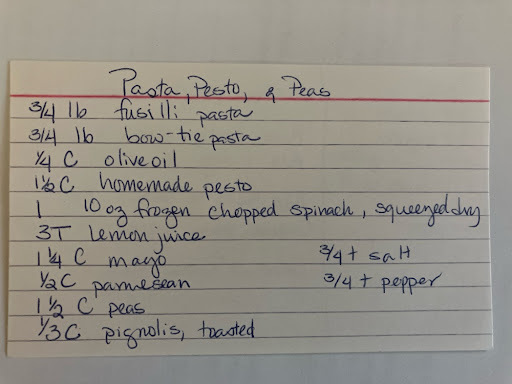 Pasta, Pesto, & Peas
3/4 lb fusilli pasta
3/4 lb bow-tie pasta
1/4 C olive oil
1 1/2 C homemade pesto
1 10 oz frozen chopped spinach, squeezed dry
3T lemon juice
1 1/4 C mayo 3/4 t salt
1/2 C parmesean 3/4 t pepper
1 1/2 C peas
1/3 C pignolis, toasted